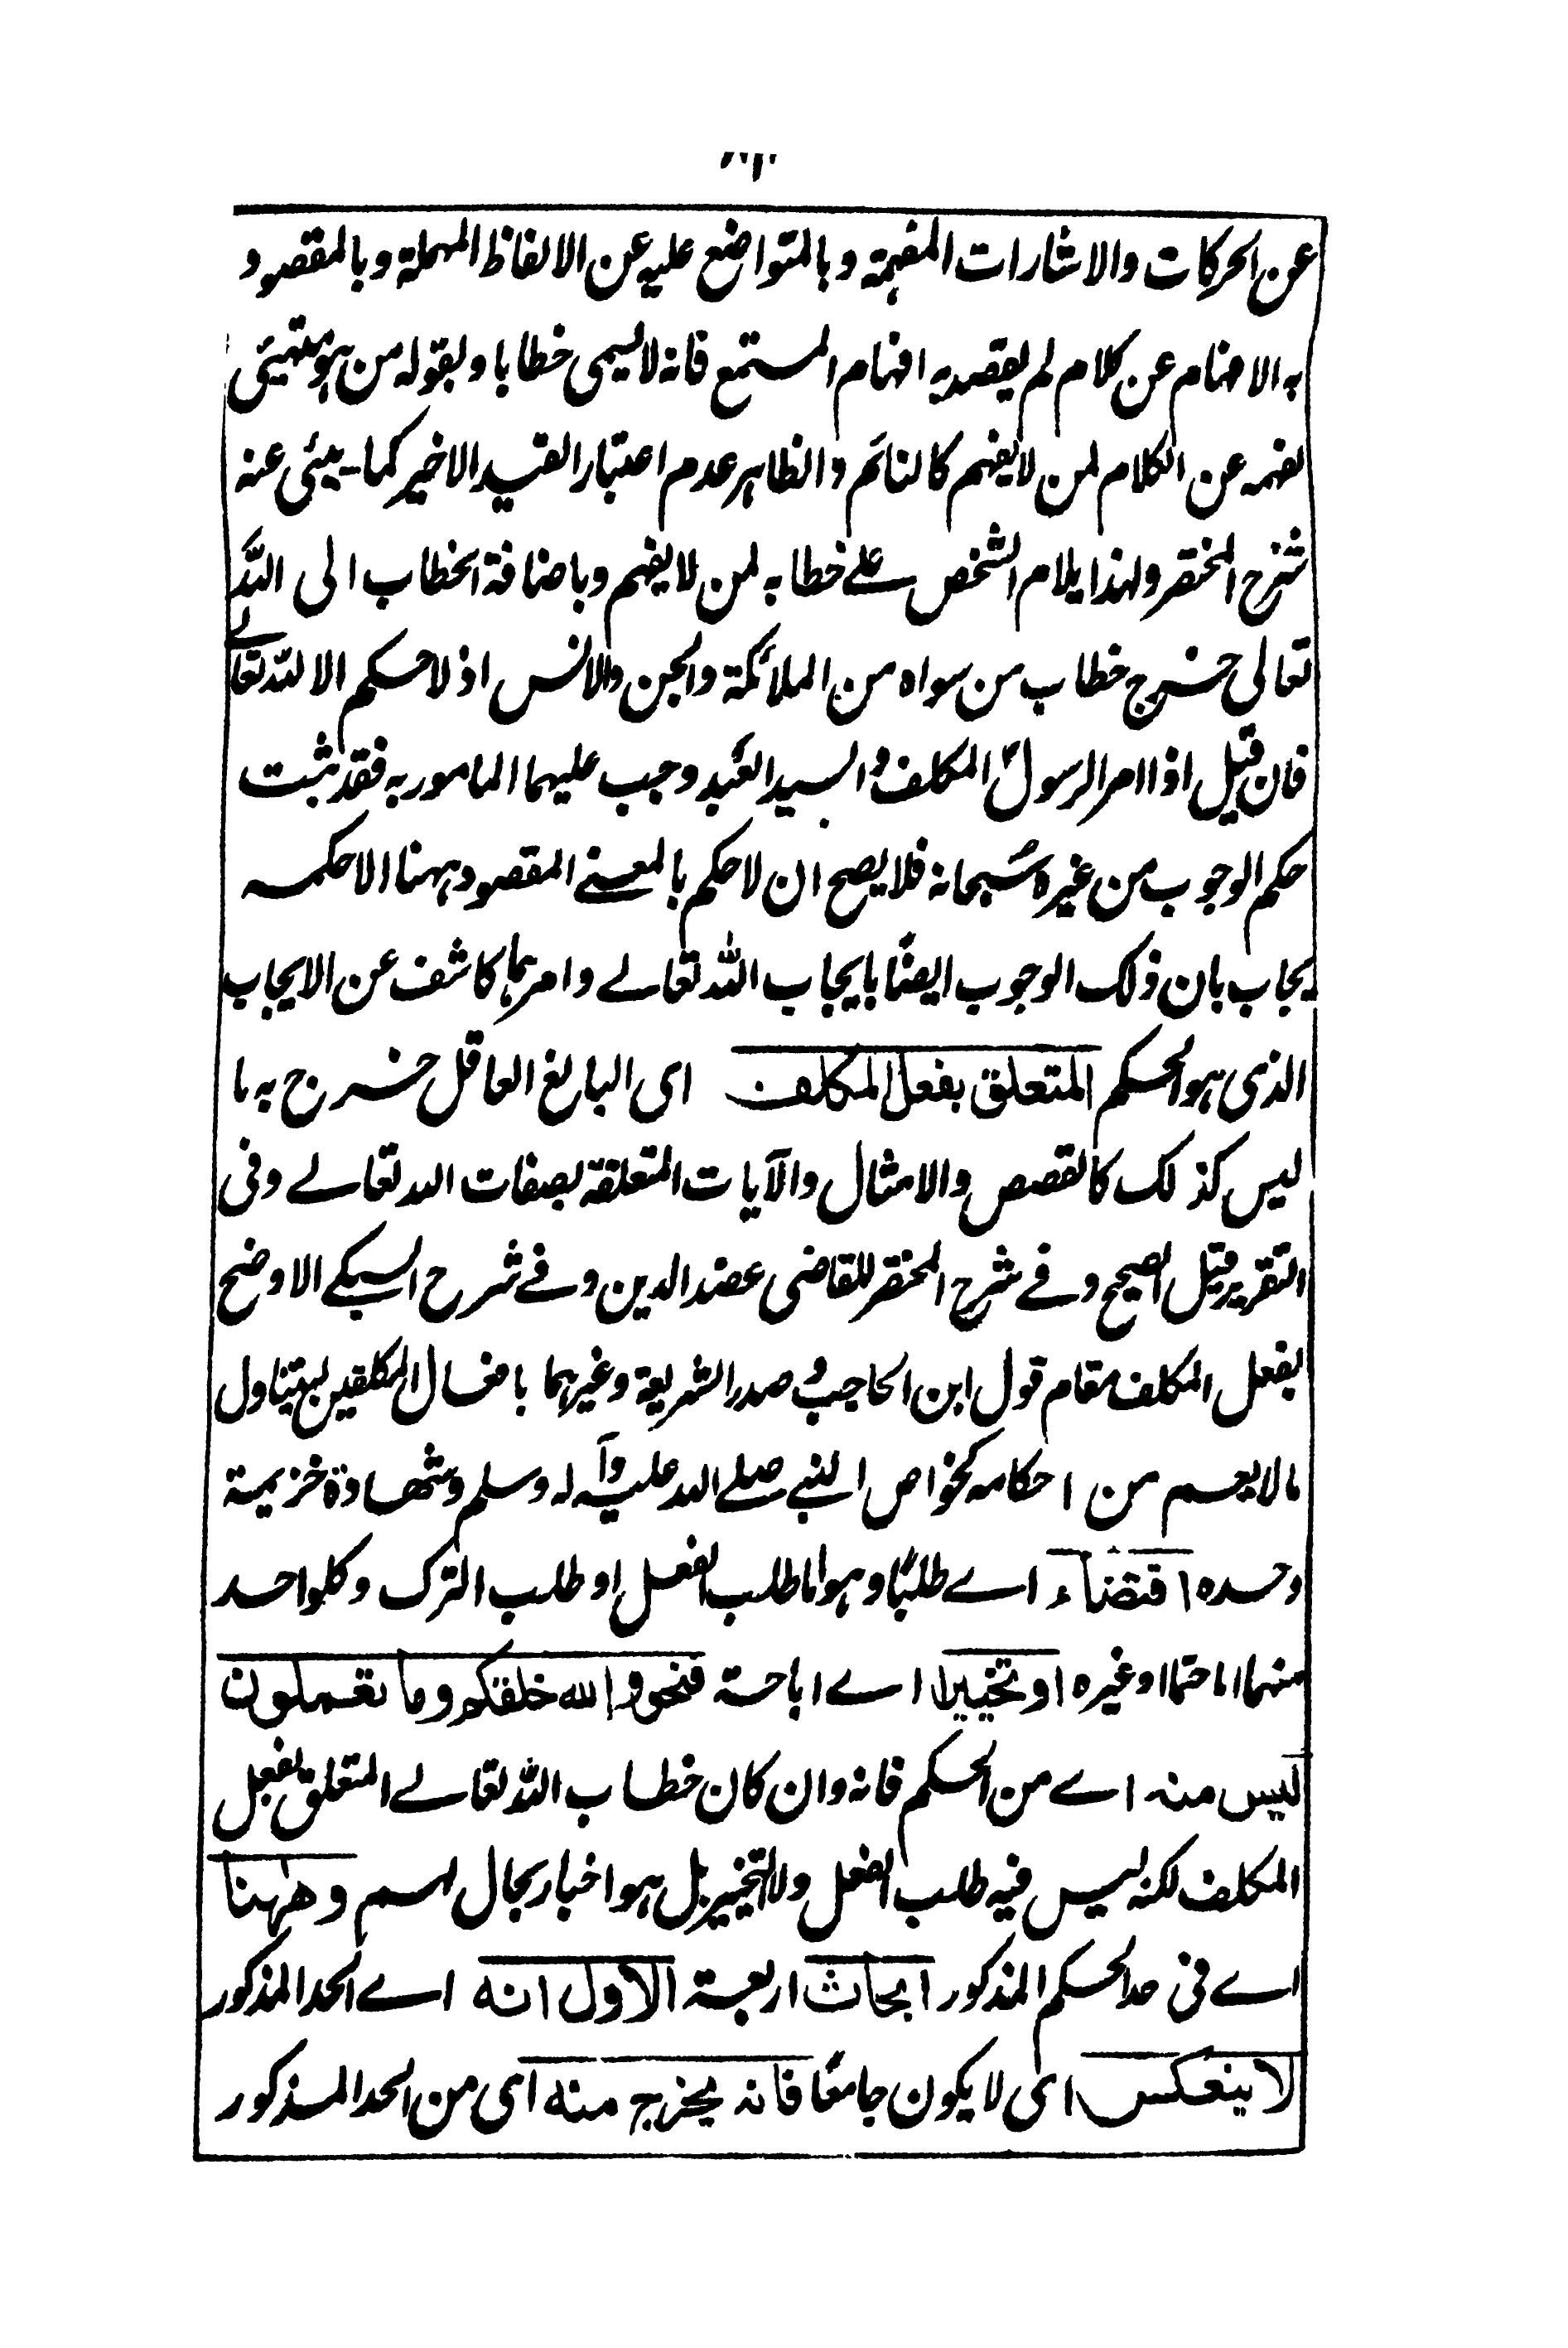 عن الحركات والاشارات المفهمة وبالمتواضع عليه عن الالفاظ المهملة وبالمقصود
به الافهام عن كلام لم يقصد به افهام المستمع فانه لا يسمى خطابا وبقوله من هو متهيئ
لفهمه عن الكلام لمن لا يفهم كالنائم والظاهر عدم اعتبار القيد الاخير كما ينبئ عنه
شرح المختصر ولهذا يلام الشخص على خطابه لمن لا يفهم وباضافة الخطاب الى الله
تعالى خرج خطاب من سواه من الملائكة والجن والانس اذ لا حكم الا لله تعالى
فان قيل اذا امر الرسول المكلف والسيد العبد وجب عليهما المامور به فقد ثبت
حكم الوجوب من غيره سبحانه فلا يصح ان لا حكم بالمعنى المقصود ههنا الا حكمه
يجاب بان ذلك الوجوب ايضًا بايجاب الله تعالى وامرهما كاشف عن الايجاب
الذى هو الحكم المتعلق بفعل المكلف اى البالغ العاقل خرج به ما
ليس كذلك كالقصص والامثال والآيات المتعلقة بصفات الله تعالى وفى
التقرير قيل الصحيح وفى شرح المختصر للقاضى عضد الدين وفى شرح السبكى الاوضح
بفعل المكلف مقام قول ابن الحاجب وصدر الشريعة وغيرهما بافعال المكلفين ليتناول
ما لا يعم من احكامه كخواص النبى صلى الله عليه وآله وسلم وشهادة خزيمة
وحده اقتضاء اى طلبًا وهو اما طلب الفعل او طلب الترك وكل واحد
منهما اما حتما او غيره او تخييرا اى اباحة فنحو والله خلقكم وما تعملون
ليس منه اى من الحكم فانه وان كان خطاب الله تعالى المتعلق بفعل
المكلف لكنه ليس فيه طلب الفعل ولا التخيير بل هو اخبار بحال لهم وههنا
اى فى حد الحكم المذكور ابحاث اربعة الاول انه اى الحد المذكور
لا ينعكس اى لا يكون جامعًا فانه يخرج منه اى من الحد المذكور